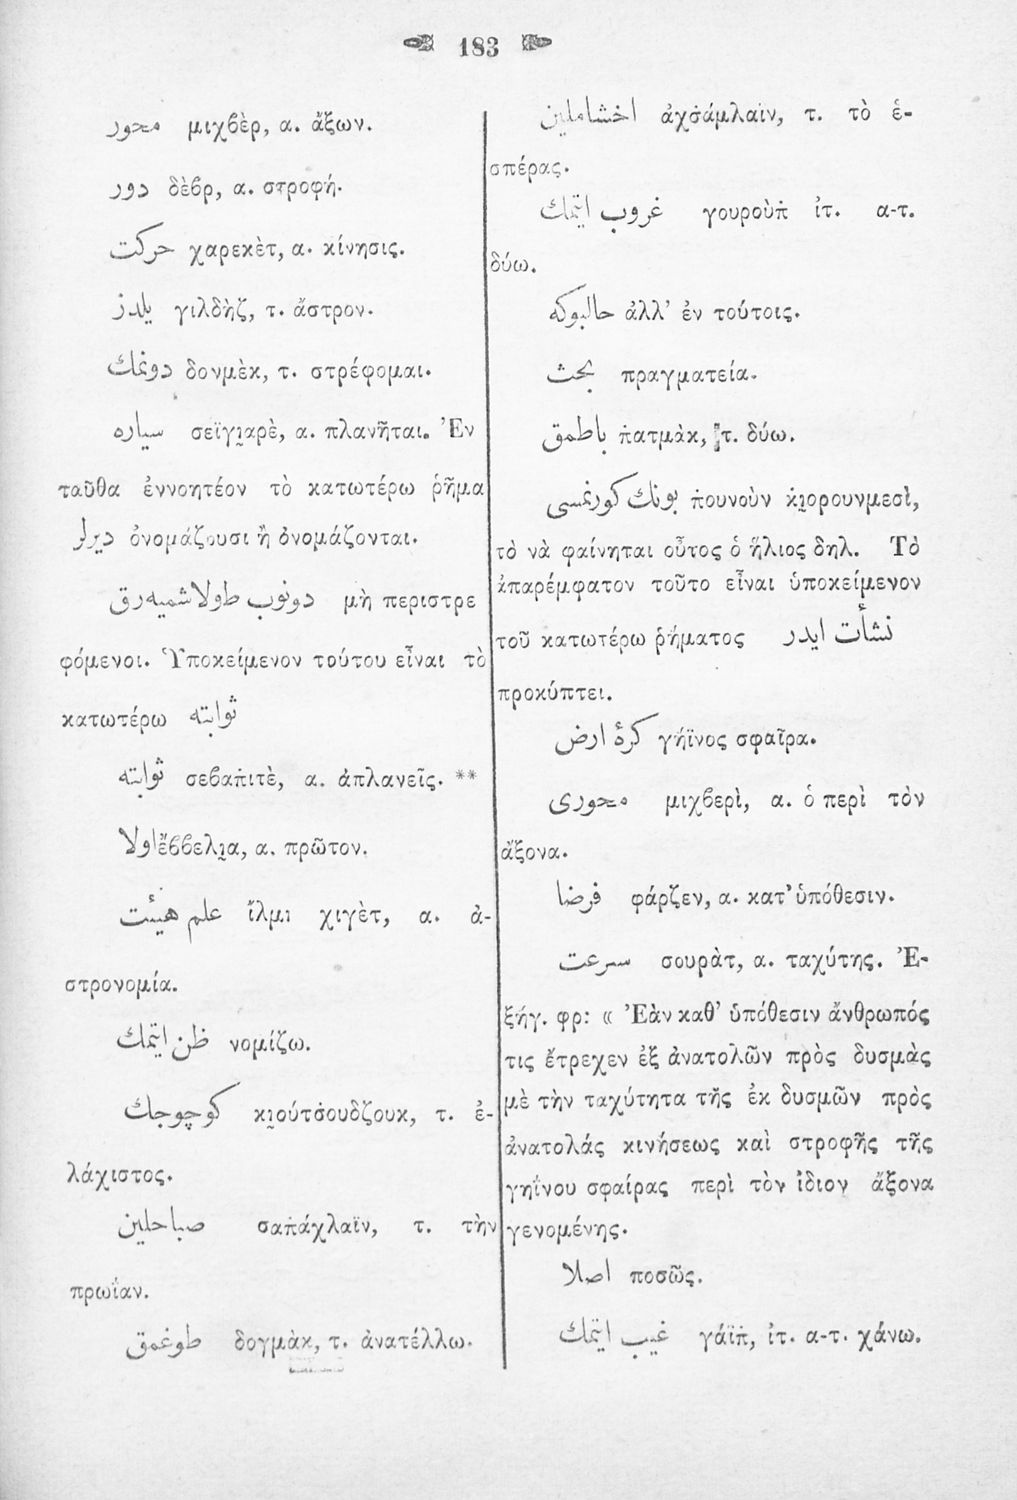 183
محور μιχβὲρ, α. ἄξων.
دور δὲβρ, α. στροφή.
حركت χαρεκὲτ, α. κίνησις.
يلدز γιλδὴζ, τ. ἄστρον.
دونمك δονμὲκ, τ. στρέφομαι.
سياره σεϊγιαρὲ, α. πλανῆται. Ἐν
ταῦθα ἐννοητέον τὸ κατωτέρω ῥῆμα
ديرلر ὀνομάζουσι ἢ ὀνομάζονται.
دونوب طولاشميه‌رق μὴ περιστρε
φόμενοι. Ὑποκείμενον τούτου εἶναι τὸ
κατωτέρω ثوابته
ثوابته σεβαπ̇ιτὲ, α. ἀπλανεῖς. **
اولا ἔββελια, α. πρῶτον.
علم هيئت ἴλμι χιγὲτ, α. ἀ-
στρονομία.
ظن ايتمك νομίζω.
كوچوجك κιούτσ̇ουδζουκ, τ. ἐ-
λάχιστος.
صباحلين σαπ̇άχλαϊν, τ. τὴν
πρωΐαν.
طوغمق δογμὰκ, τ. ἀνατέλλω.
اخشاملين ἀχσ̇άμλαϊν, τ. τὸ ἑ-
σπέρας.
غروب ايتمك γουροὺπ̇ ἰτ. α-τ.
δύω.
حالبوكه ἀλλ’ ἐν τούτοις.
بحث πραγματεία.
باطمق π̇ατμὰκ, τ. δύω.
بونك كورنمسى π̇ουνοὺν κ̇ιορουνμεσὶ,
τὸ νὰ φαίνηται οὗτος ὁ ἥλιος δηλ. Τὸ
ἀπαρέμφατον τοῦτο εἶναι ὑποκείμενον
τοῦ κατωτέρω ῥήματος نشأت ايدر
προκύπτει.
كرۀ ارض γήϊνος σφαῖρα.
محورى μιχβερὶ, α. ὁ περὶ τὸν
ἄξονα.
فرضا φάρζεν, α. κατ’ ὑπόθεσιν.
سرعت σουρὰτ, α. ταχύτης. Ἐ-
ξήγ. φρ: « Ἐὰν καθ’ ὑπόθεσιν ἄνθρωπός
τις ἔτρεχεν ἐξ ἀνατολῶν πρὸς δυσμὰς
μὲ τὴν ταχύτητα τῆς ἐκ δυσμῶν πρὸς
ἀνατολάς κινήσεως καὶ στροφῆς τῆς
γηΐνου σφαίρας περὶ τὸν ἴδιον ἄξονα
γενομένης.
اصلا ποσῶς.
غيب ايتمك γάϊπ̇, ἰτ. α-τ. χάνω.